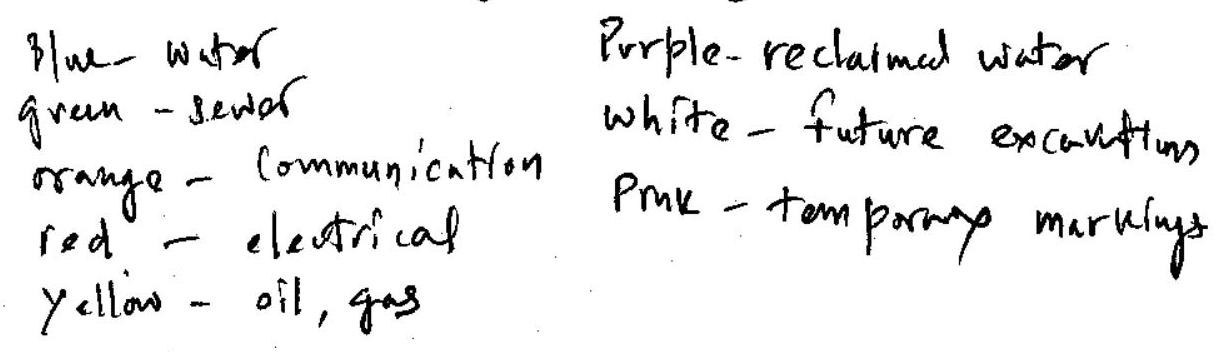 Blue - water
green - sewer
orange - communication
red - electrical
yellow - oil, gas
Purple - reclaimed water
white - future excavations
Pink - temporary markings